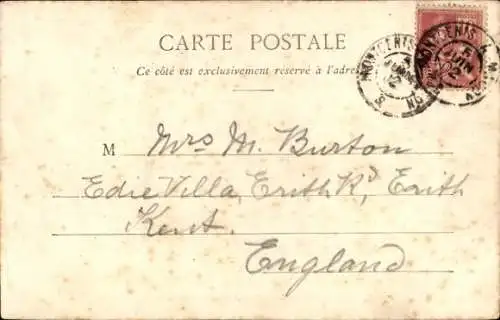 CARTE POSTALE
Ce côté est exclusivement réservé à l'adre
M Mrs M. Burton
Edie Villa, Erith Rd, Erith
Kent.
England
MONTCENIS
MONTCENIS